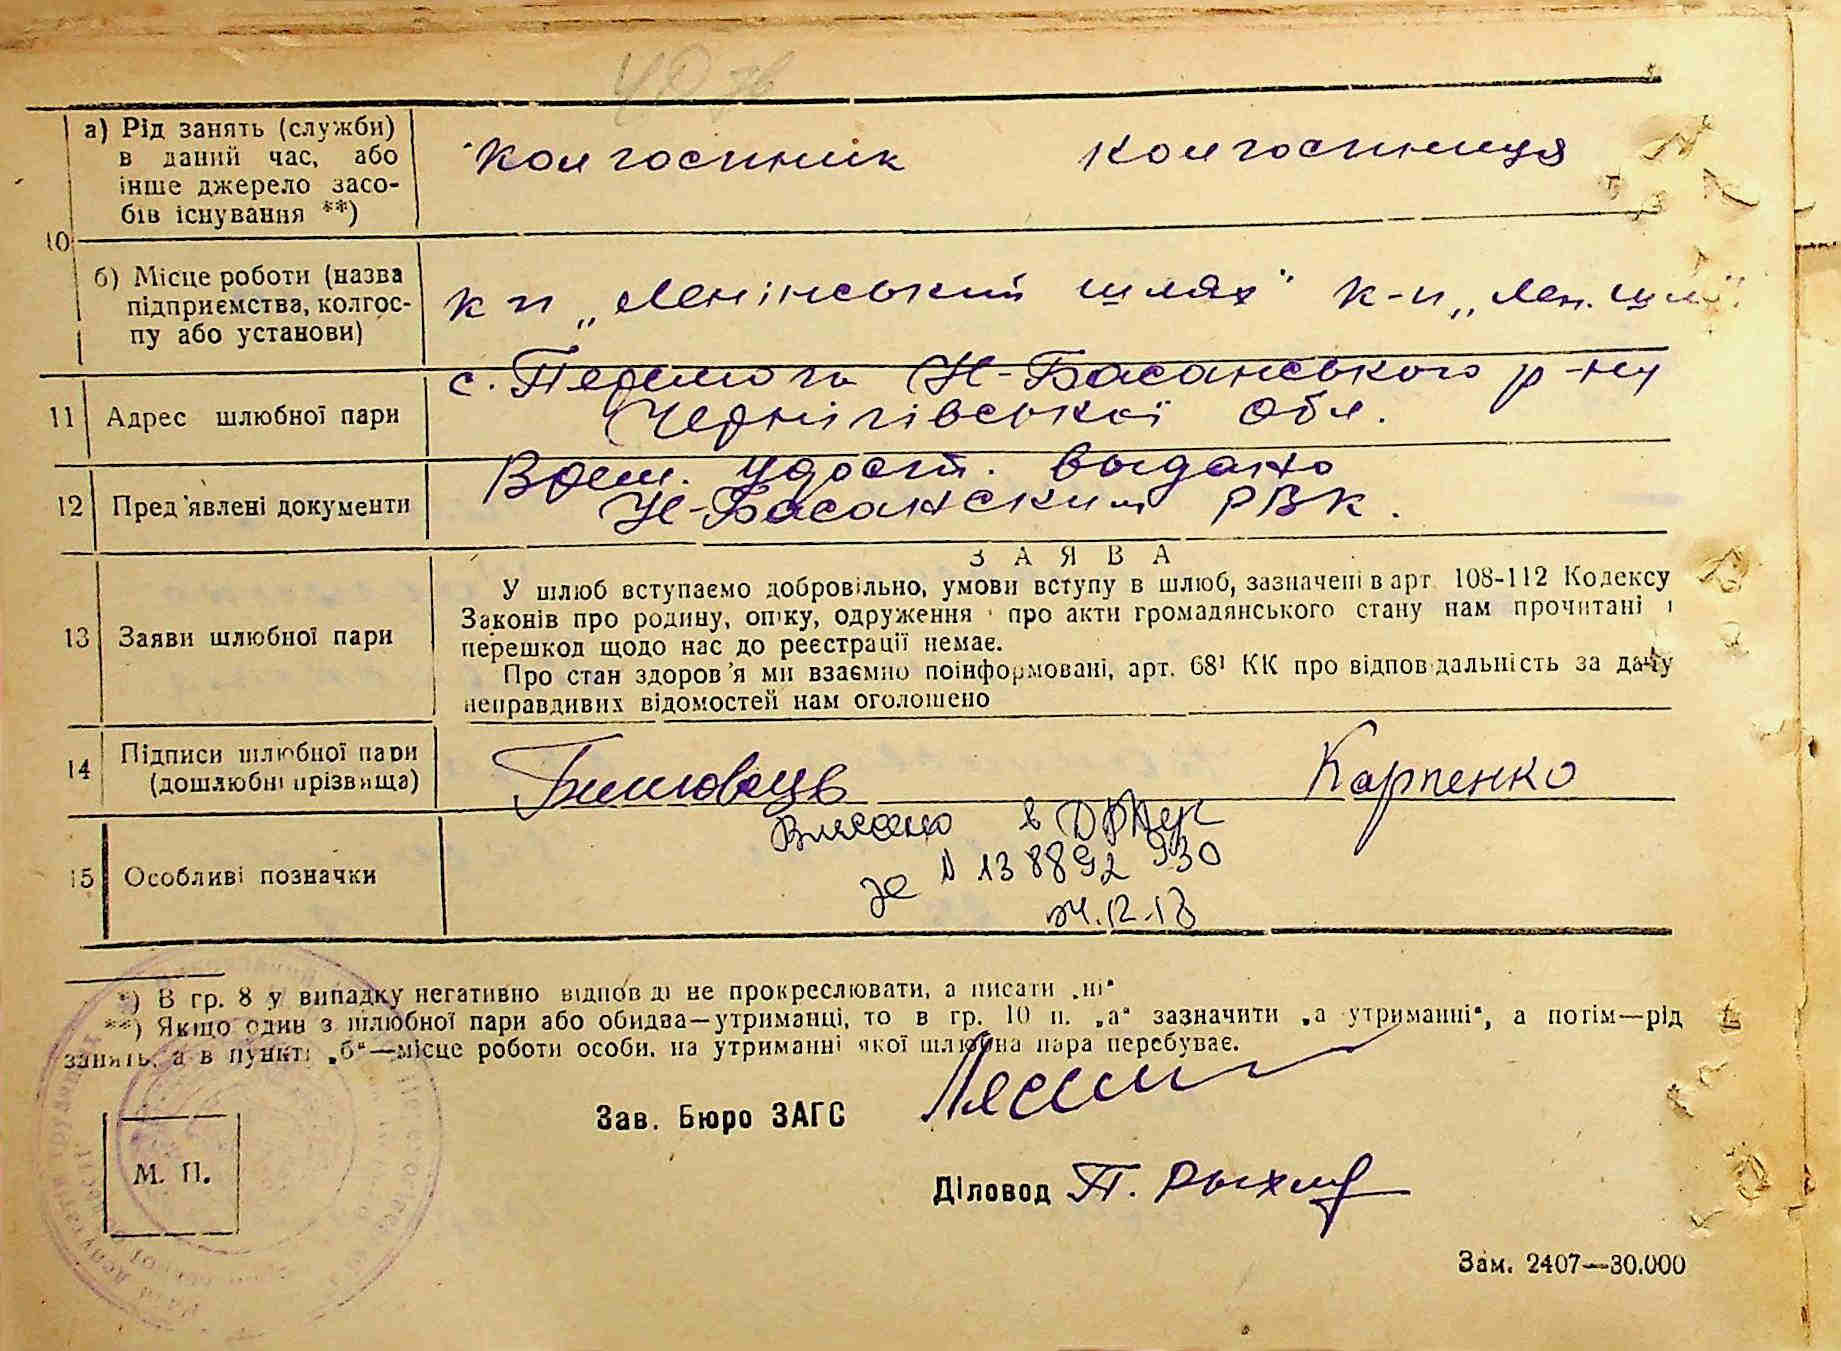 10
а) Рід занять (служби)
в даний час, або
інше джерело засо-
бів існування **)
Колгоспник колгоспниця
б) Місце роботи (назва
підприємства, колгос-
пу або установи)
к-п „Ленінський шлях" к-п „Лен. шл"
11 Адрес шлюбної пари
с. Перемога Н-Басанського р-ну
Чернігівської обл.
12 Пред'явлені документи
Врем. удост. выдано
Н-Басанским РВК.
13 Заяви шлюбної пари
ЗАЯВА
У шлюб вступаємо добровільно, умови вступу в шлюб, зазначені в арт. 108-112 Кодексу
Законів про родину, опіку, одруження і про акти громадянського стану нам прочитані і
перешкод щодо нас до реєстрації немає.
Про стан здоров'я ми взаємно поінформовані, арт. 68¹ КК про відповідальність за дачу
неправдивих відомостей нам оголошено
14 Підписи шлюбної пари
(дошлюбні прізвища)
Карпенко
15 Особливі позначки
Внесено в
за N 138892930
04.12.13
*) В гр. 8 у випадку негативно відповіді не прокреслювати, а писати „ні"
**) Якщо один з шлюбної пари або обидва—утриманці, то в гр. 10 п. „а" зазначити „а утриманні", а потім—рід
занять, а в пункті „б"—місце роботи особи, на утриманні якої шлюбна пара перебуває.
Зав. Бюро ЗАГС
М. П.
Діловод П.
Зам. 2407—30.000